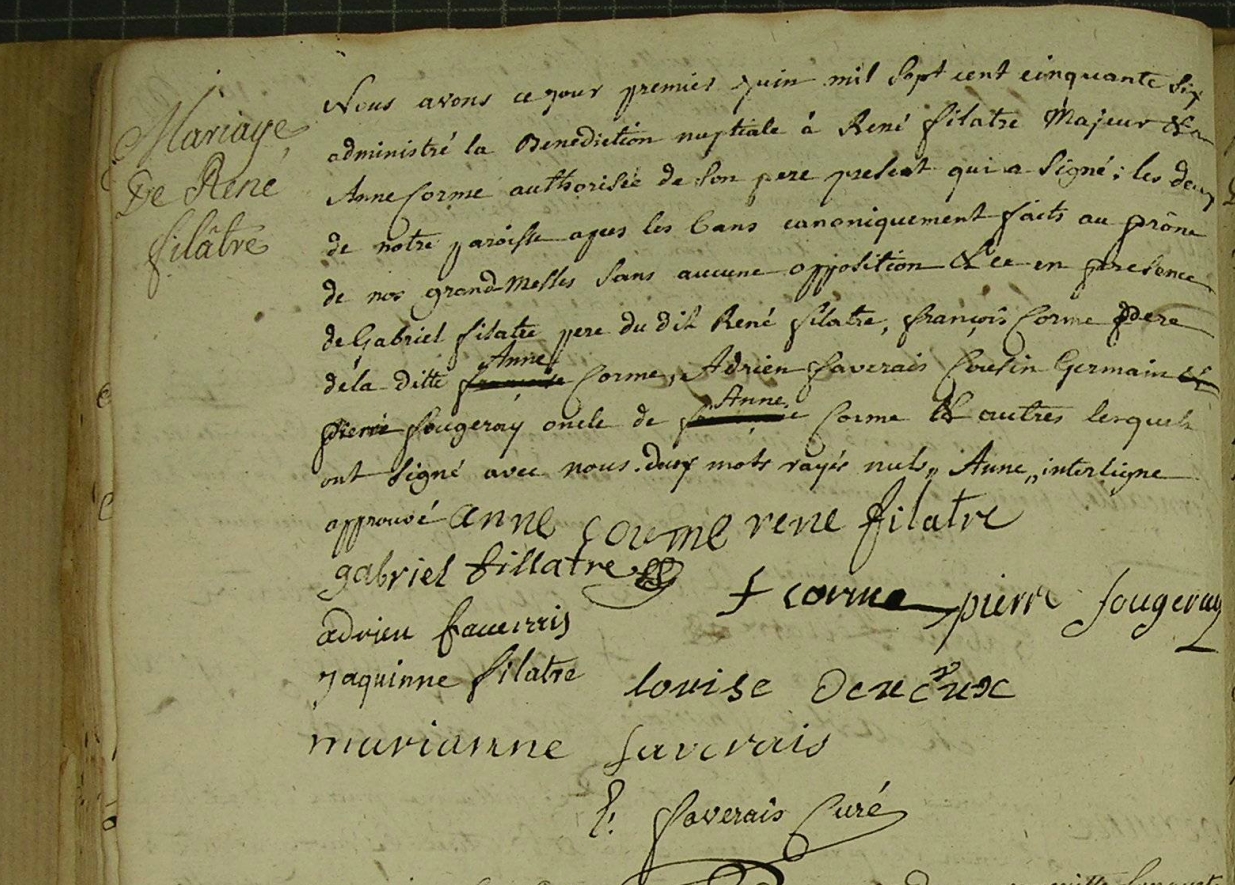 Mariage
De René
filâtre
Nous avons ce jour premier juin mil sept cent cinquante six
administré la Benediction nuptiale à René filatre Majeur & a
Anne Corme authorisée de son pere present qui a signé; les deux
de notre paroisse apres les bans canoniquement faits au prône
de nos grand Messes sans aucune opposition & ce en presence
de Gabriel filatre pere du dit René filatre, françois Corme pere
Anne
de la ditte françoise Corme, Adrien faverais Cousin Germain &
Anne
pierre fougeray oncle de françoise Corme & autres lesquels
ont signé avec nous. deux mots rayés nuls,, Anne,, interligne
approuvé anne corme rene filatre
gabriel fillatre
f corme pierre fougeray
adrien faverris
jaquinne filatre louise
marianne faverais
faverais Curé